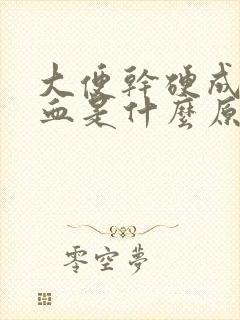 大便幹硬成
血是什麼原
零空夢